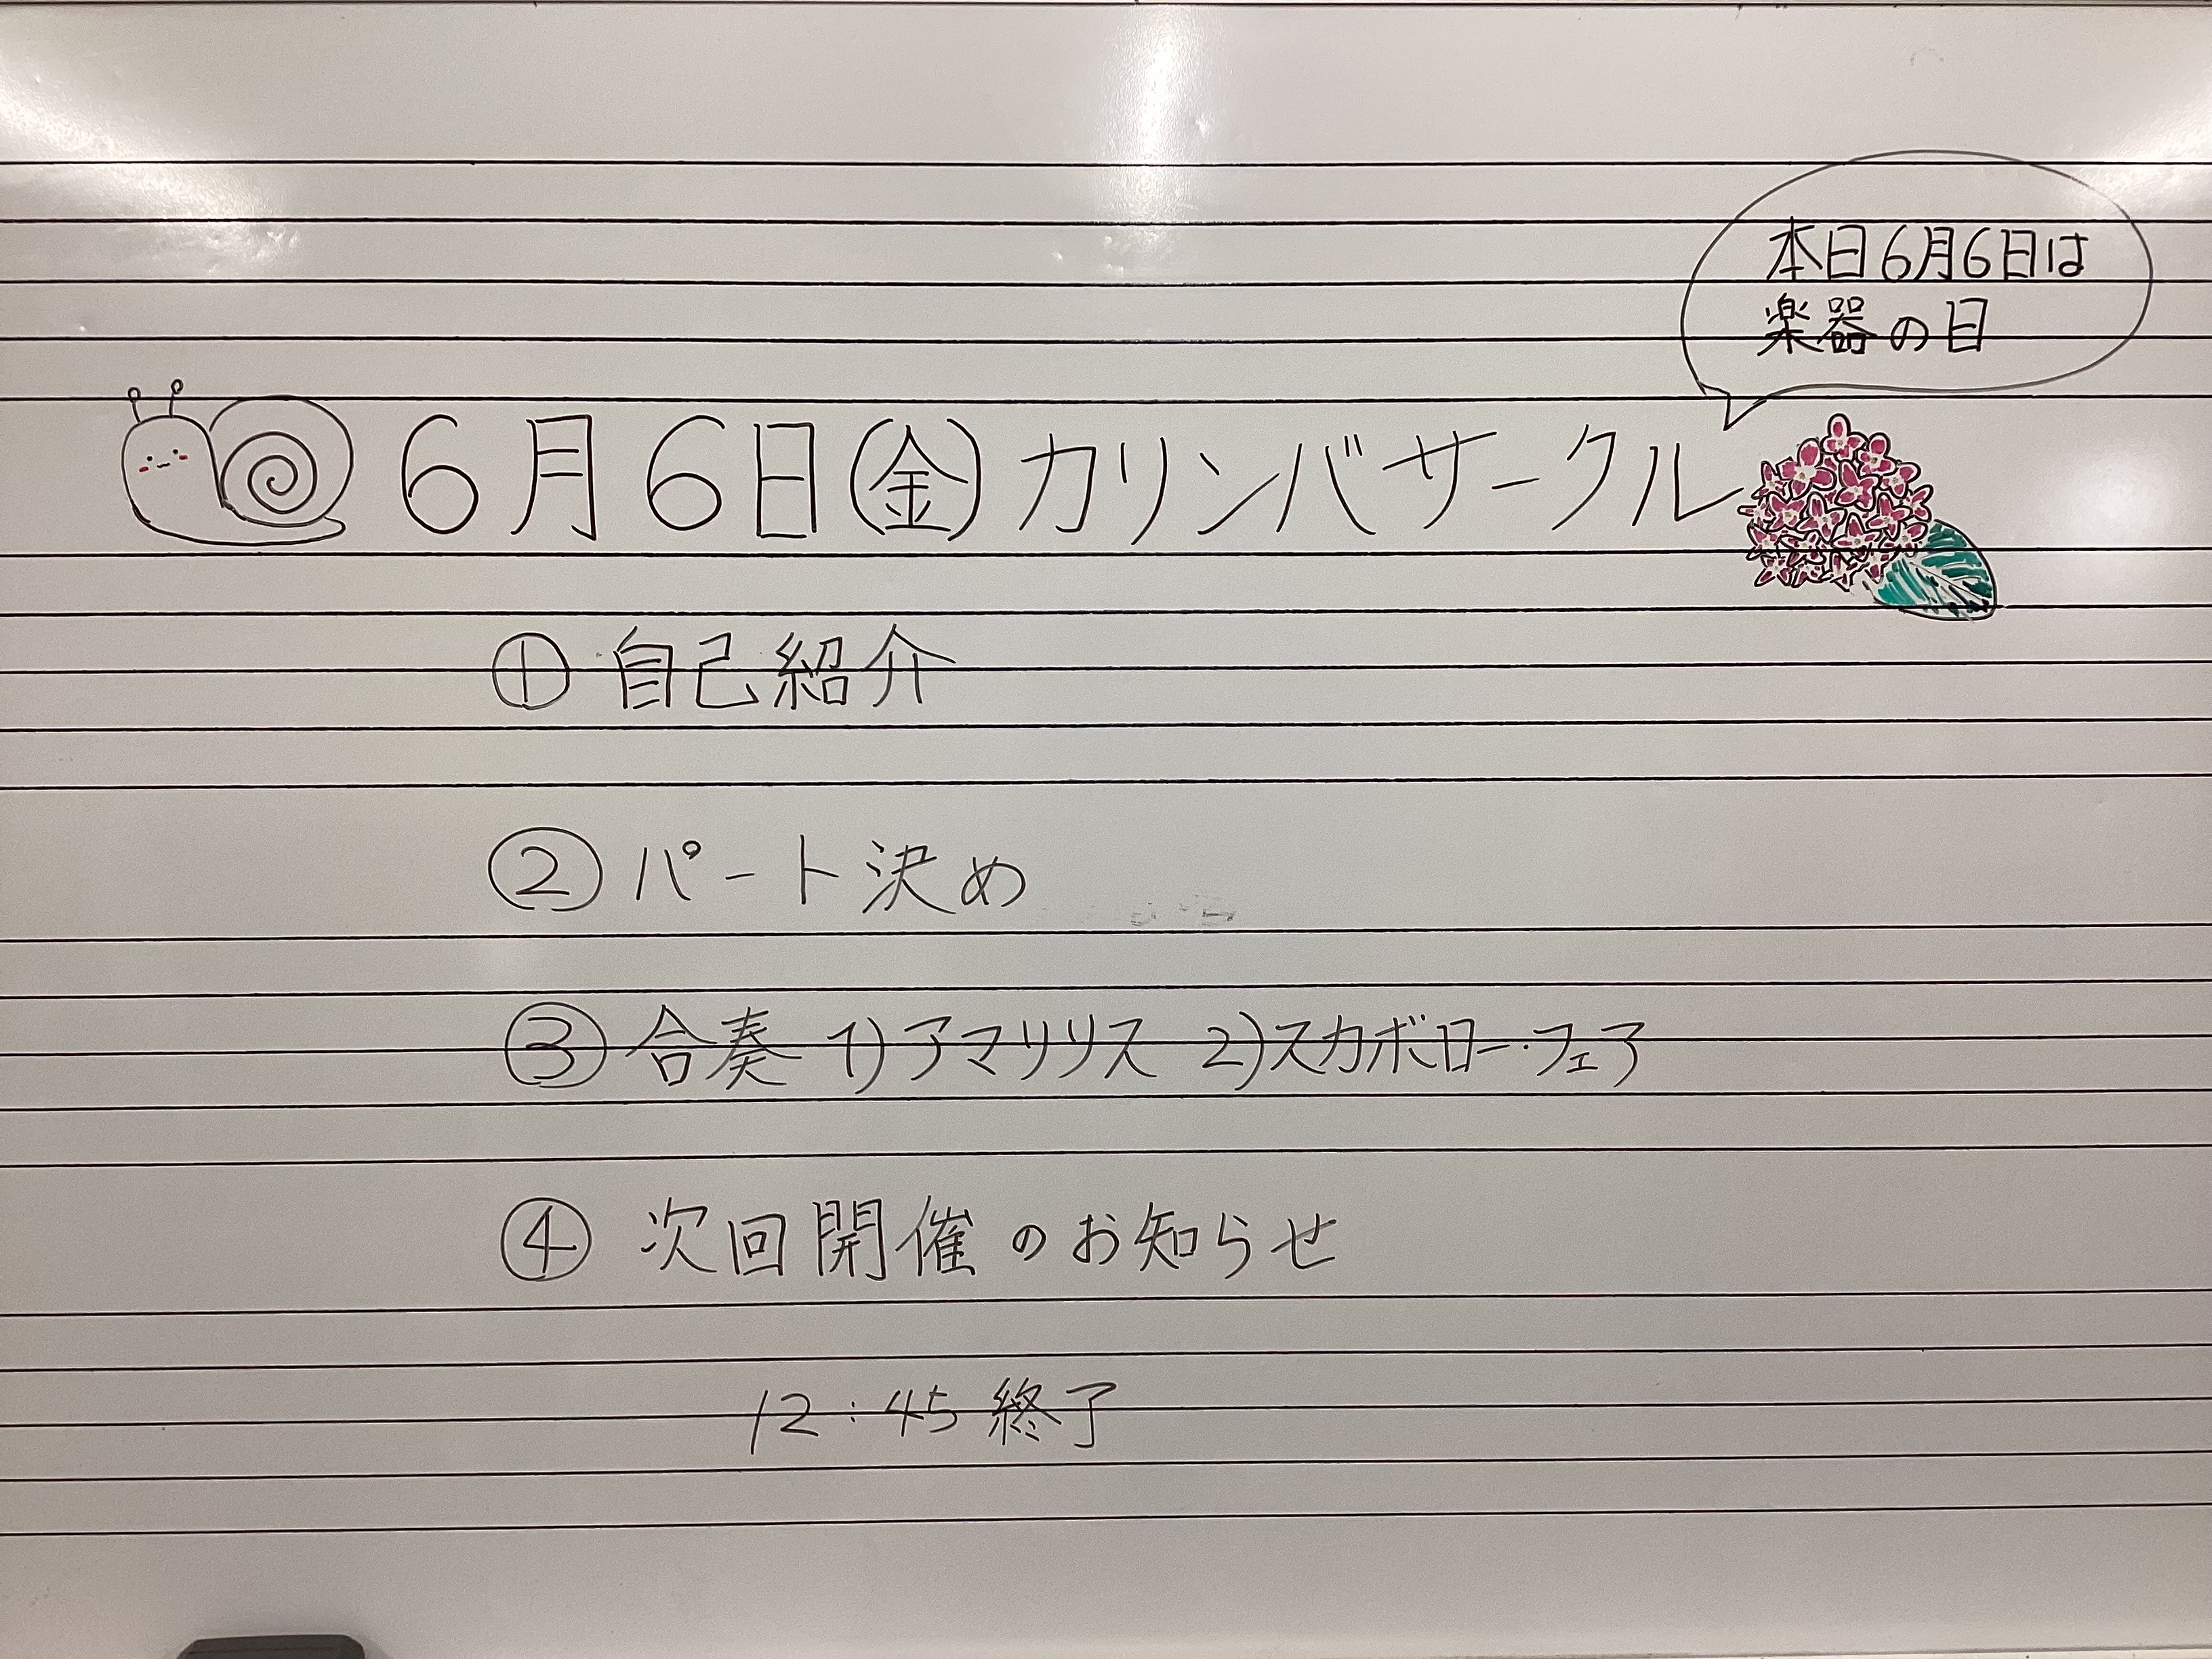 本日6月6日は
楽器の日
6月6日(金)カリンバサークル
① 自己紹介
② パート決め
③ 合奏 1)アマリリス 2)スカボロー・フェア
④ 次回開催のお知らせ
12:45 終了